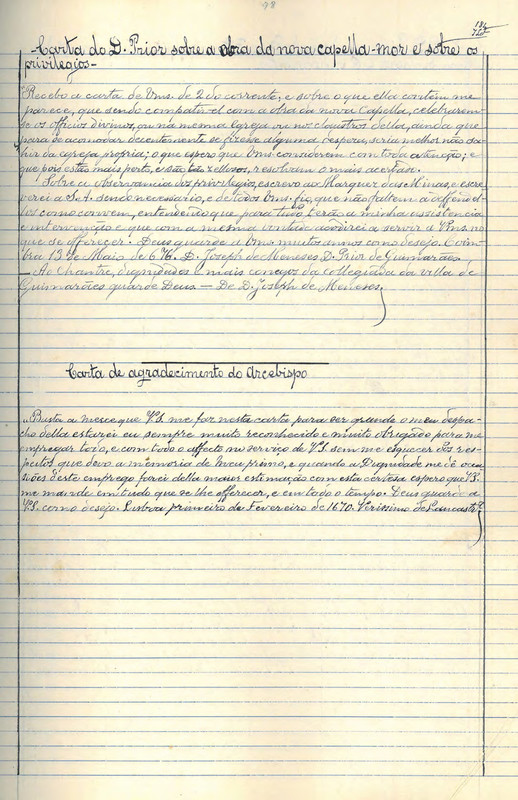 98
-Carta do D. Prior sobre a obra da nova capella-mor e sobre os
privilegios-
Recebo a carta de Vms. de 2 do corrente, e sobre o que ella contem me
parece, que sendo compativel com a obra da nova Capella, celebrarem-
se os officios divinos, ou na mesma egreja ou nos claustros della, ainda que
para se acomodar decentemente se fizesse alguma despesa, seria melhor não sa-
hir da igreja propria; o que espero que Vms. considerem com toda attenção; e
que pois estão mais perto, e são tão zellosos, resolvam o mais acertado.
Sobre a observancia dos privilegios, escrevo ao Marquez das Minas, e escre-
verei a S. A. sendo necessario, e de todos Vms. fio, que não faltem a defendel-
los como convem, entendendo que para tudo terão a minha assistencia
e intervenção e que com a mesma vontade acodirei a servir a Vms. no
que se offerecer. Deus guarde a Vms. muitos annos como desejo. Coim-
bra 13 de Maio de 676. D. Joseph de Menezes D. Prior de Guimarães
— Ao Chantre, dignidades e mais conegos da collegiada da villa de
Guimarães guarde Deus — De D. Joseph de Menezes.
Carta de agradecimento do Arcebispo
"Basta a merce que V.S. me faz nesta carta para ser grande o meu despa-
cho della estarei eu sempre muito reconhecido e muito obrigado, para me
empregar todo, e com todo o affecto no serviço de V.S. sem me esquecer dos res-
peitos que devo a memoria de meu primo, e quando a Dignidade me dê occa-
siões deste emprego farei della maior estimação com esta certesa espero que V.S.
me mande em tudo que se lhe offerecer, e em todo o tempo. Deus guarde a
V.S. como desejo. Lisboa primeiro de Fevereiro de 1670. Verissimo de Lancastro